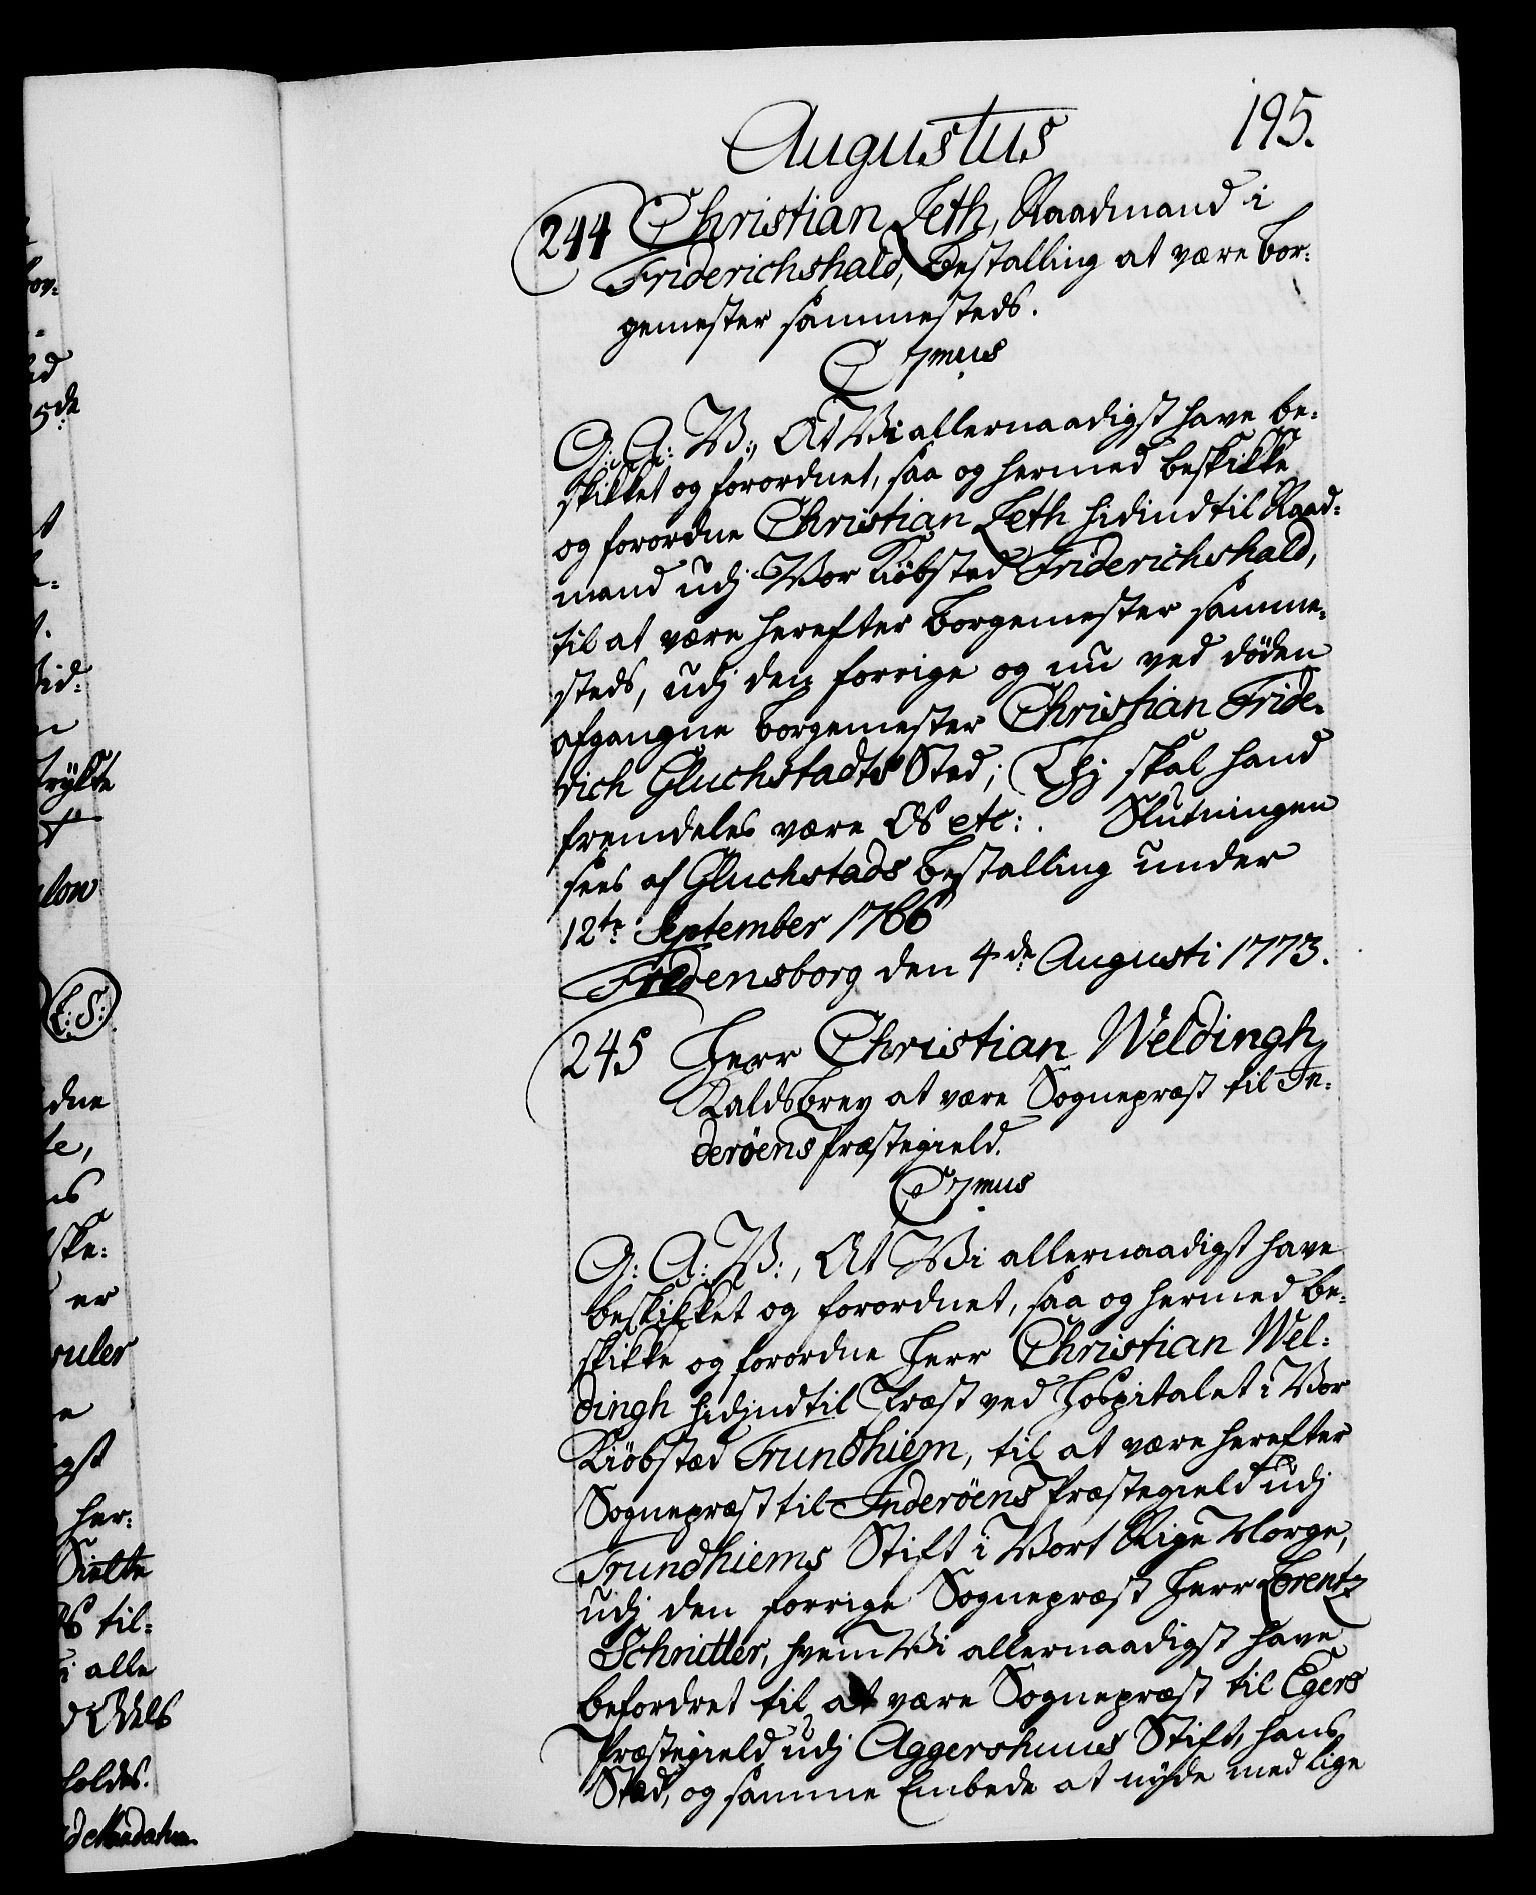 Augustus 195.
244 Christian Leth, Raadmand i
Friderichshald, Bestalling at være Bor:
gemester sammesteds.
C 7mus
G: A: V:, At Vi allernaadigst have be:
skikket og forordnet, saa og hermed beskikke
og forordne Christian Leth hidindtil Raad:
mand udj Vor Kiöbsted Friderichshald,
til at være herefter Borgemester samme:
steds, udj den forrige og nu ved döden
afgangne Borgemester Christian Fride:
rich Gluchstadts Sted; Thj skal hand
fremdeles være Os etc: . Slutningen
sees af Gluchstads Bestalling under
12te September 1766
Fredensborg den 4de Augusti 1773.
245 Herr Christian Weldingh
Kaldsbrev at være Sognepræst til In:
deröens Præstegield.
C 7mus
G: A: V:, At Vi allernaadigst have
beskikket og forordnet, saa og hermed be:
skikke og forordne Herr Christian Wel:
dingh hidindtil Præst ved Hospitalet i Vor
Kiöbstæd Trundhiem, til at være herefter
Sognepræst til Inderöens Præstegield udj
Trundhiems Stift i Vort Rige Norge,
udj den forrige Sognepræst Herr Lorentz
Schnitler, hvem Vi allernaadigst have
befordret til at være Sognepræst til Egers
Præstegield udj Aggershuus Stift, hans
Sted, og samme Embede at nyde med lige